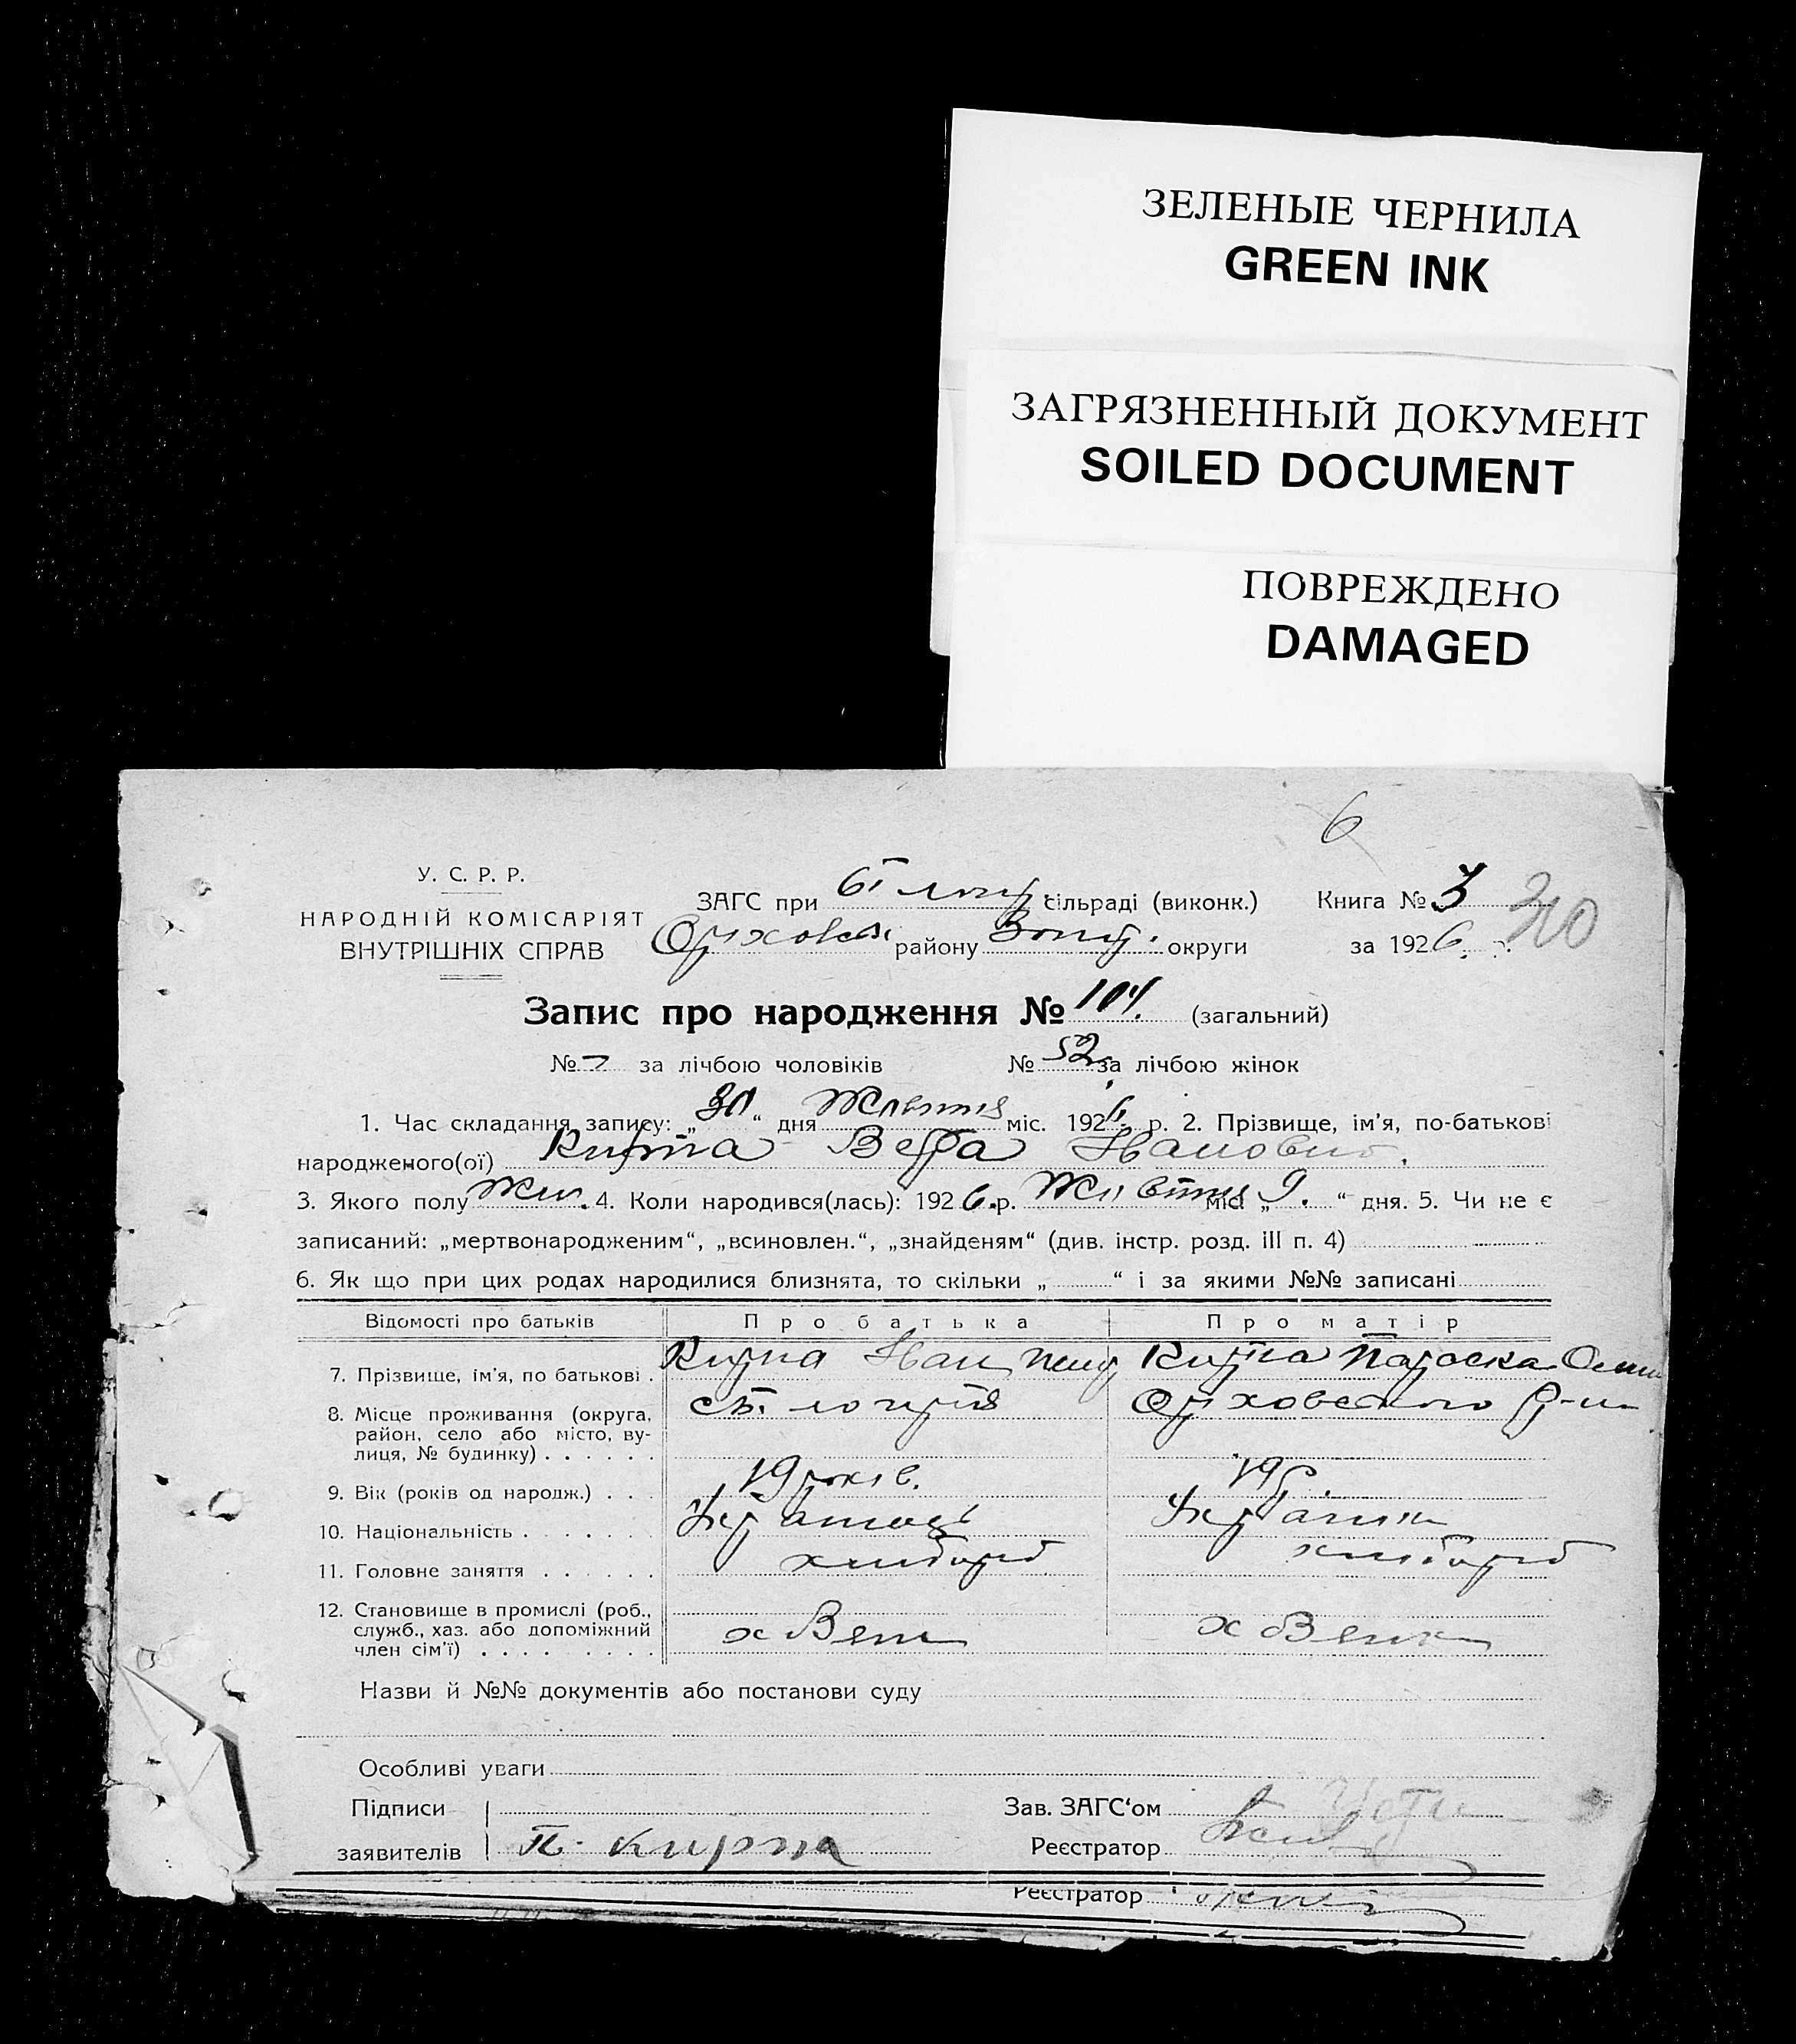 ЗЕЛЕНЫЕ ЧЕРНИЛА
GREEN INK
ЗАГРЯЗНЕННЫЙ ДОКУМЕНТ
SOILED DOCUMENT
ПОВРЕЖДЕНО
DAMAGED
6
У. С. Р. Р.
НАРОДНІЙ КОМІСАРІЯТ
ВНУТРІШНІХ СПРАВ
ЗАГС при сільраді (виконк.) Книга № 3
району округи за 1926
Запис про народження № 104. (загальний)
№ – за лічбою чоловіків № 52 за лічбою жінок
1. Час складання запису: „30“ дня Жовтня міс. 1926 р. 2. Прізвище, ім'я, по-батькові
народженого(ої) Кирпа Вера Ивановна.
3. Якого полу Жін. 4. Коли народився(лась): 1926. р. Жовтня міс. „9.“ дня. 5. Чи не є
записаний: „мертвонародженим“, „всиновлен.“, „знайденям“ (див. інстр. розд. III п. 4)
6. Як що при цих родах народилися близнята, то скільки „ “ і за якими №№ записані
Відомості про батьків Про батька Про матір
7. Прізвище, ім'я, по батькові . Кирпа Иван Кирпа Параска
8. Місце проживання (округа, район, село або місто, вулиця, № будинку) . . . . . . Оріховского р-н
9. Вік (років од народж.) . . . 19 років. 19 р.
10. Національність . . . . . . Українець Українка
11. Головне заняття . . . . . . хлибороб хлибороб
12. Становище в промислі (роб., служб., хаз. або допоміжний член сім'ї) . . . . . . . .
Назви й №№ документів або постанови суду
Особливі уваги
Підписи Зав. ЗАГС‘ом
заявителів П. Кирпа Реєстратор
Реєстратор